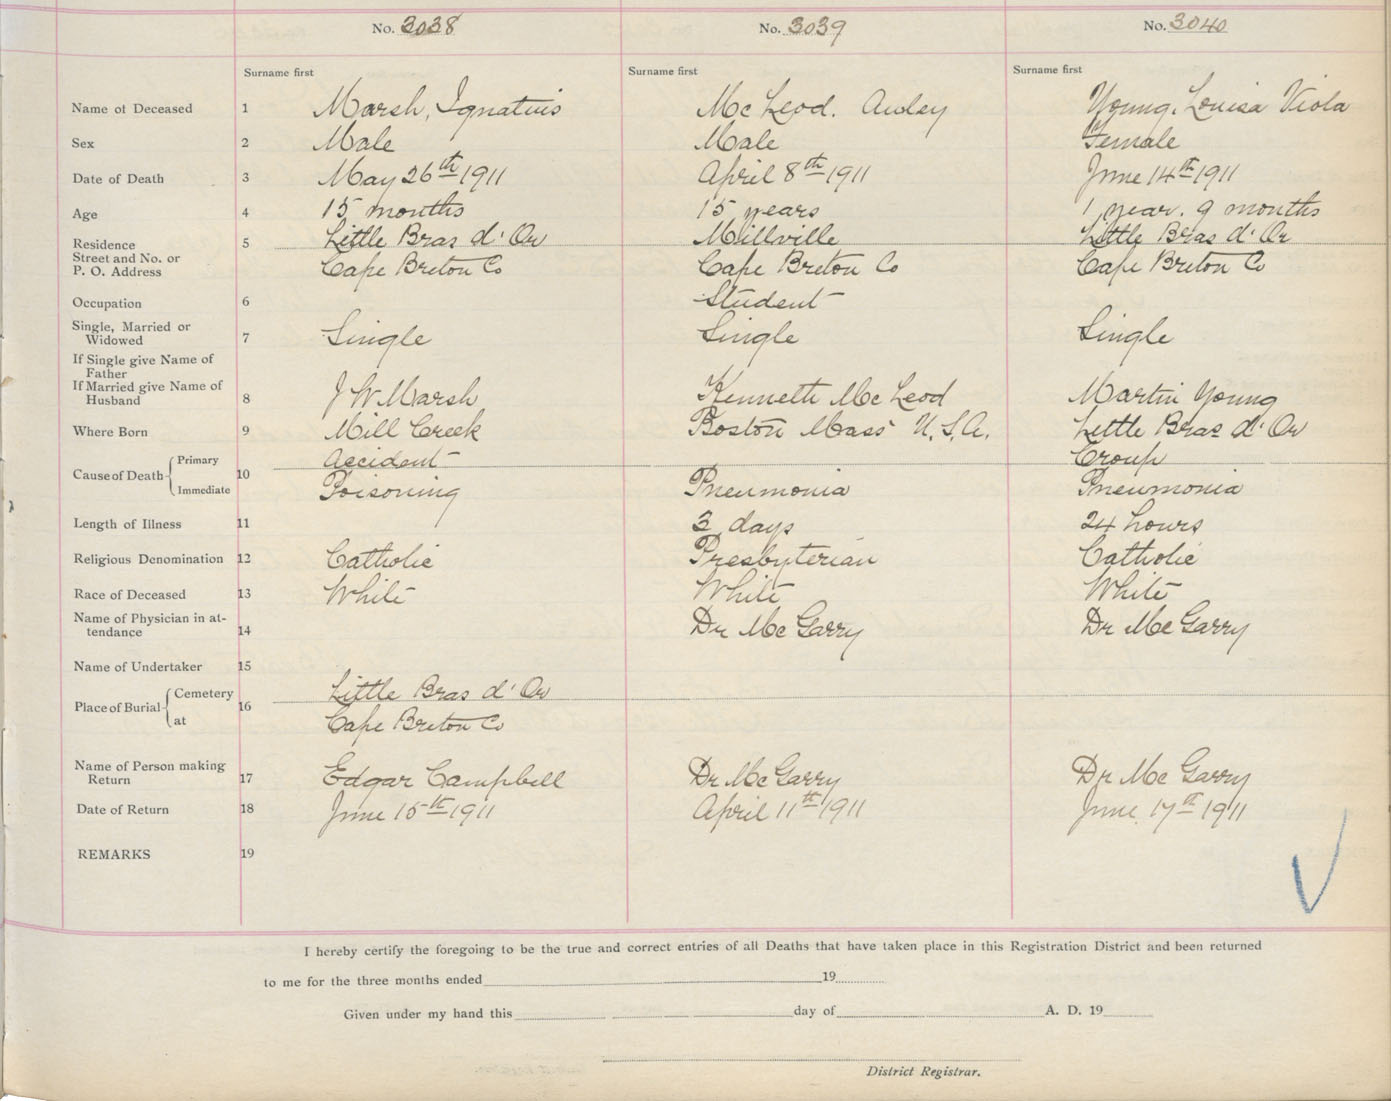 No. 3038 No. 3039 No. 3040
Surname first Surname first Surname first
Name of Deceased 1 Marsh, Ignatius Mc Leod. Auley Young, Louisa Viola
Sex 2 Male Male Female
Date of Death 3 May 26th 1911 April 8th 1911 June 14th 1911
Age 4 15 months 15 years 1 year. 9 months
Residence 5 Little Bras d'Or Millville Little Bras d'Or
Street and No. or
P. O. Address Cape Breton Co Cape Breton Co Cape Breton Co
Occupation 6 Student
Single, Married or
Widowed 7 Single Single Single
If Single give Name of
Father
If Married give Name of
Husband 8 J W Marsh Kenneth Mc Leod Martin Young
Where Born 9 Mill Creek Boston Mass U.S.A. Little Bras d'Or
Cause of Death Primary 10 Accident Croup
Immediate Poisoning Pneumonia Pneumonia
Length of Illness 11 3 days 24 hours
Religious Denomination 12 Catholic Presbyterian Catholic
Race of Deceased 13 White White White
Name of Physician in at-
tendance 14 Dr Mc Garry Dr Mc Garry
Name of Undertaker 15
Place of Burial Cemetery 16 Little Bras d'Or
at Cape Breton Co
Name of Person making
Return 17 Edgar Campbell Dr Mc Garry Dr Mc Garry
Date of Return 18 June 15th 1911 April 11th 1911 June 17th 1911
REMARKS 19
I hereby certify the foregoing to be the true and correct entries of all Deaths that have taken place in this Registration District and been returned
to me for the three months ended 19
Given under my hand this day of A. D. 19
District Registrar.